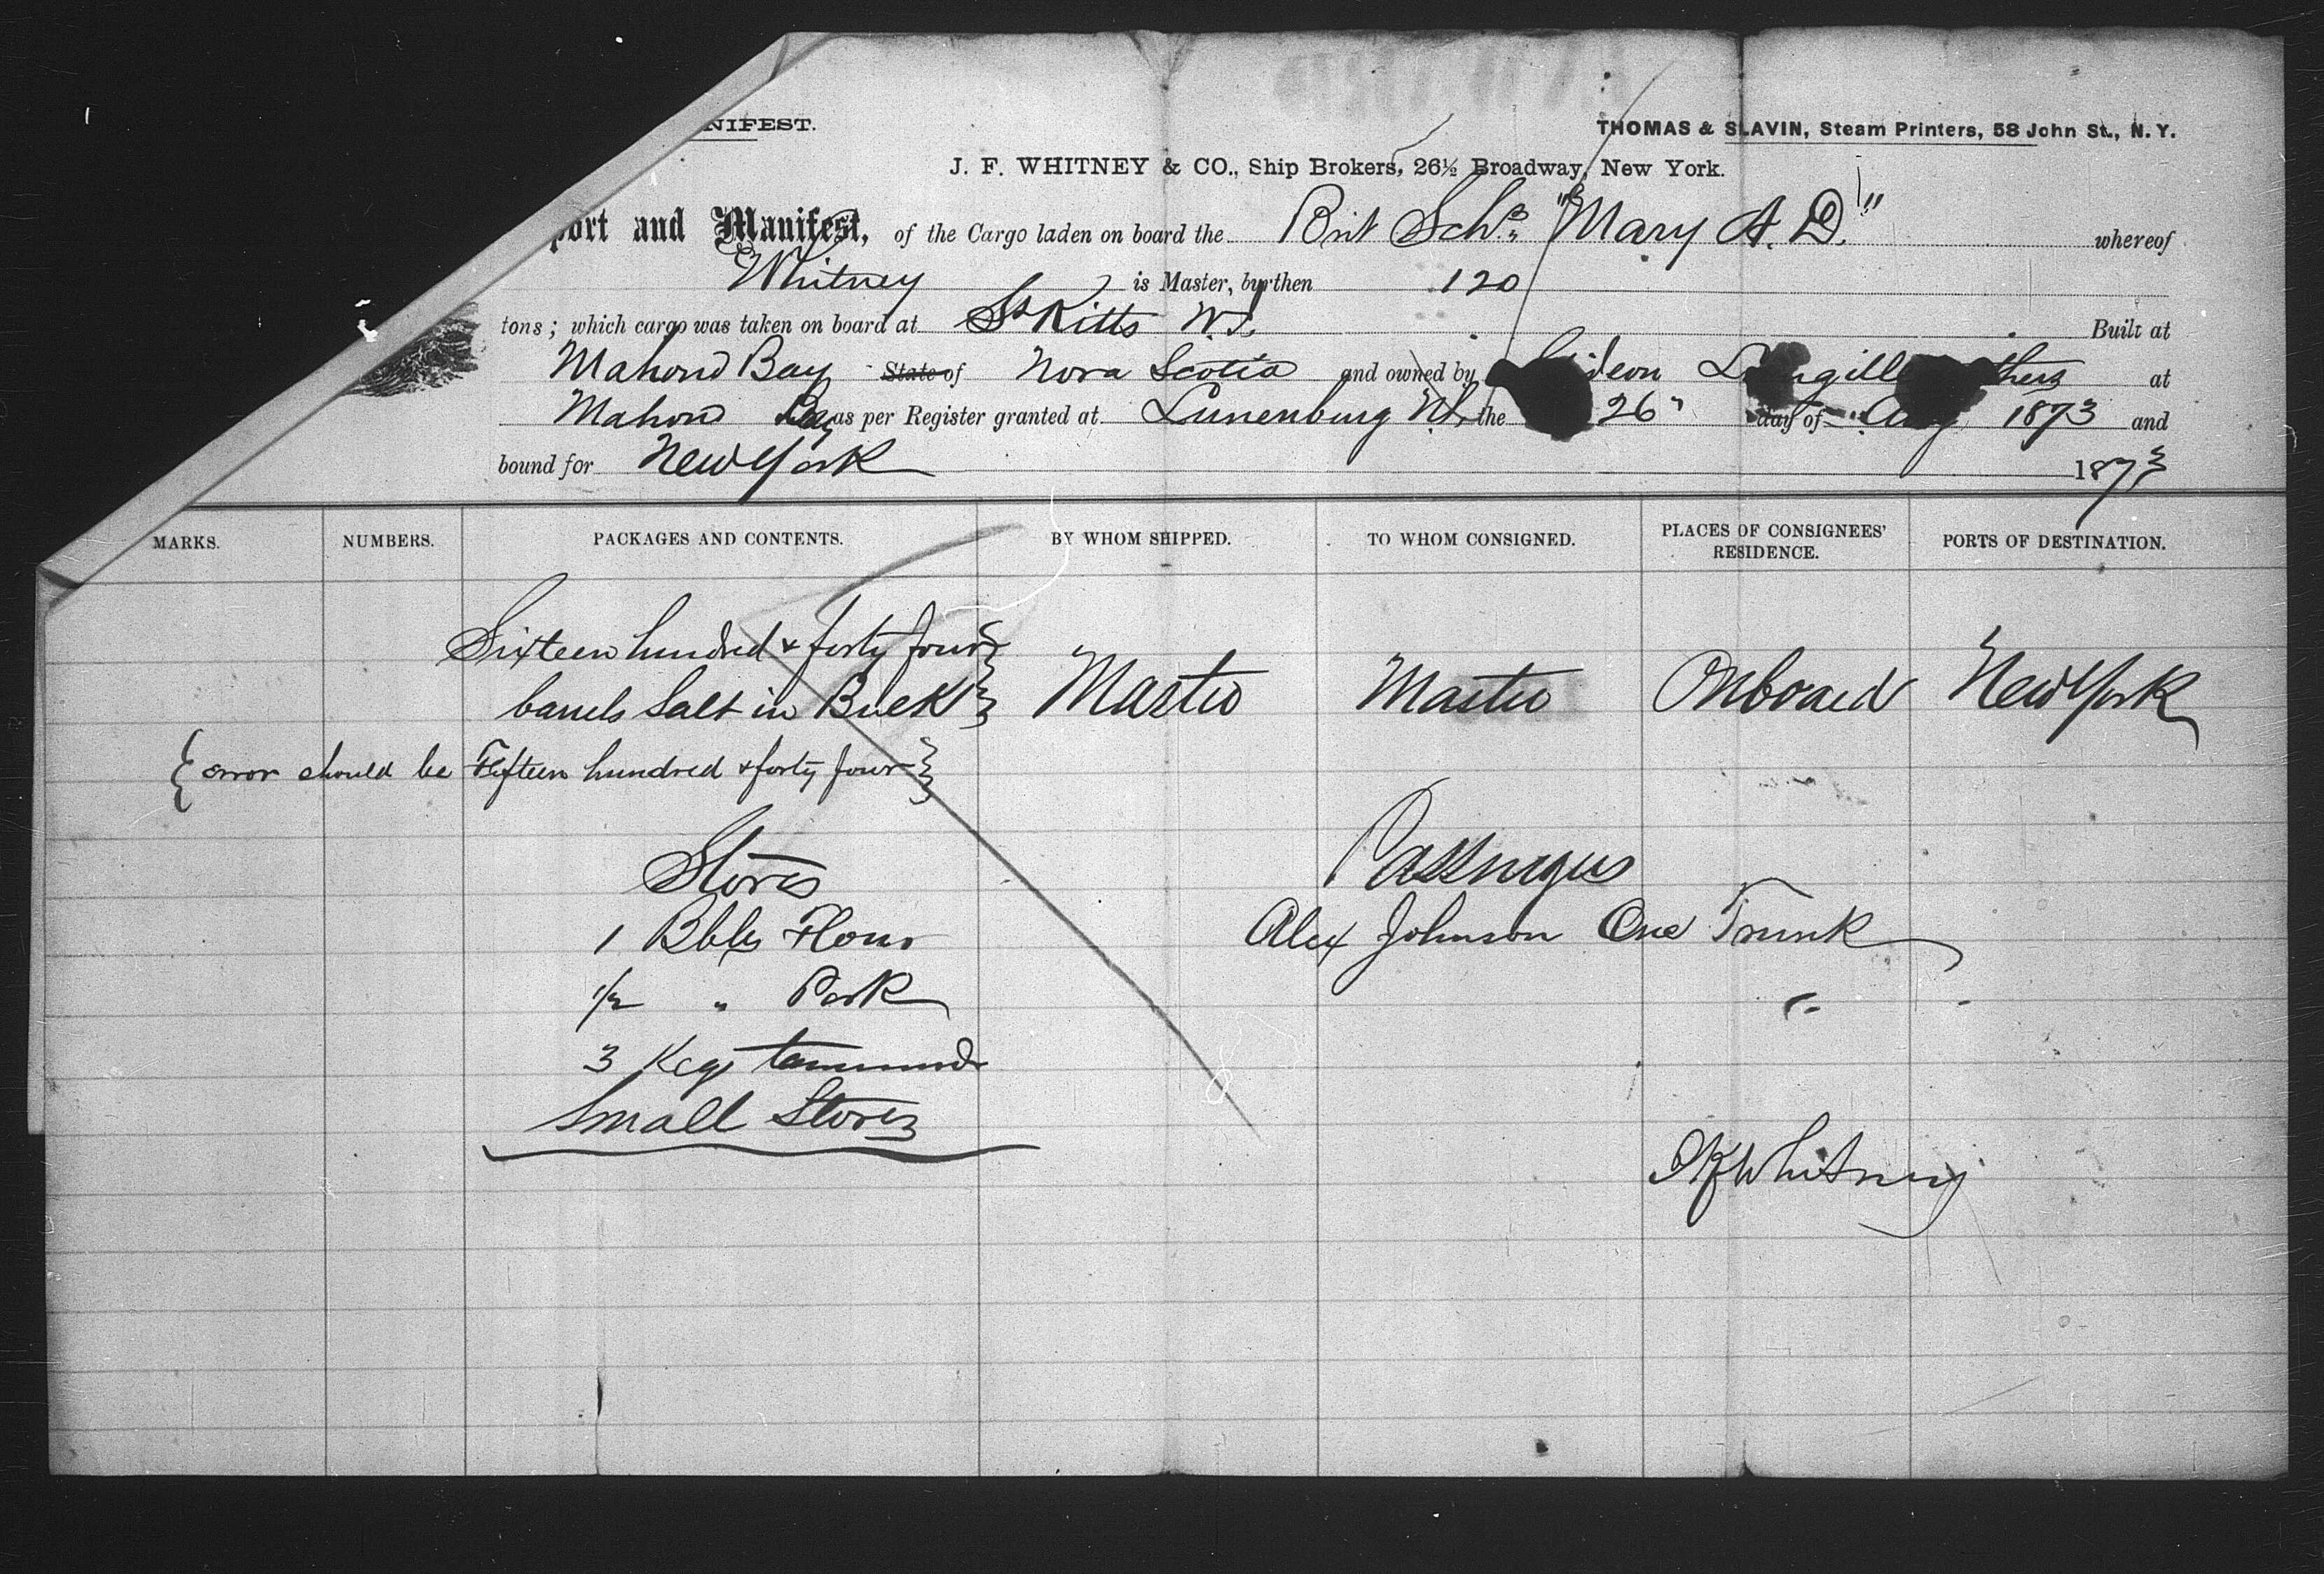 NIFEST.
THOMAS & SLAVIN, Steam Printers, 58 John St., N. Y.
J. F. WHITNEY & CO., Ship Brokers, 26½ Broadway, New York.
port and Manifest, of the Cargo laden on board the Brit Schr "Mary A. D." whereof
Whitney is Master, burthen 120
tons; which cargo was taken on board at St Kitts W.I. Built at
Mahone Bay State of Nova Scotia and owned by at
Mahone Bay as per Register granted at Lunenburg NS. the 26" day of Aug 1873 and
bound for New York 1873
MARKS. NUMBERS. PACKAGES AND CONTENTS. BY WHOM SHIPPED. TO WHOM CONSIGNED. PLACES OF CONSIGNEES' RESIDENCE. PORTS OF DESTINATION.
Sixteen hundred & forty four
barrels Salt in Bulk Master Master Onboard New York
{error should be Fifteen hundred & forty four}
Stores Passengers
1 Bbls Flour Alex Johnson One Trunk
1/2 " Pork
3 Kegs
Small Stores
Whitney